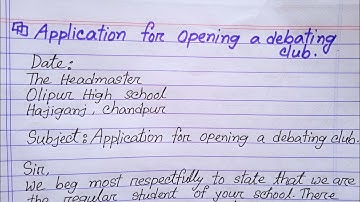 Application for opening a debating
club.
Date:
The Headmaster
Olipur High school
Hajiganj, Chandpur
Subject: Application for opening a debating club.
Sir,
We beg most respectfully to state that we are
the regular student of your school. There